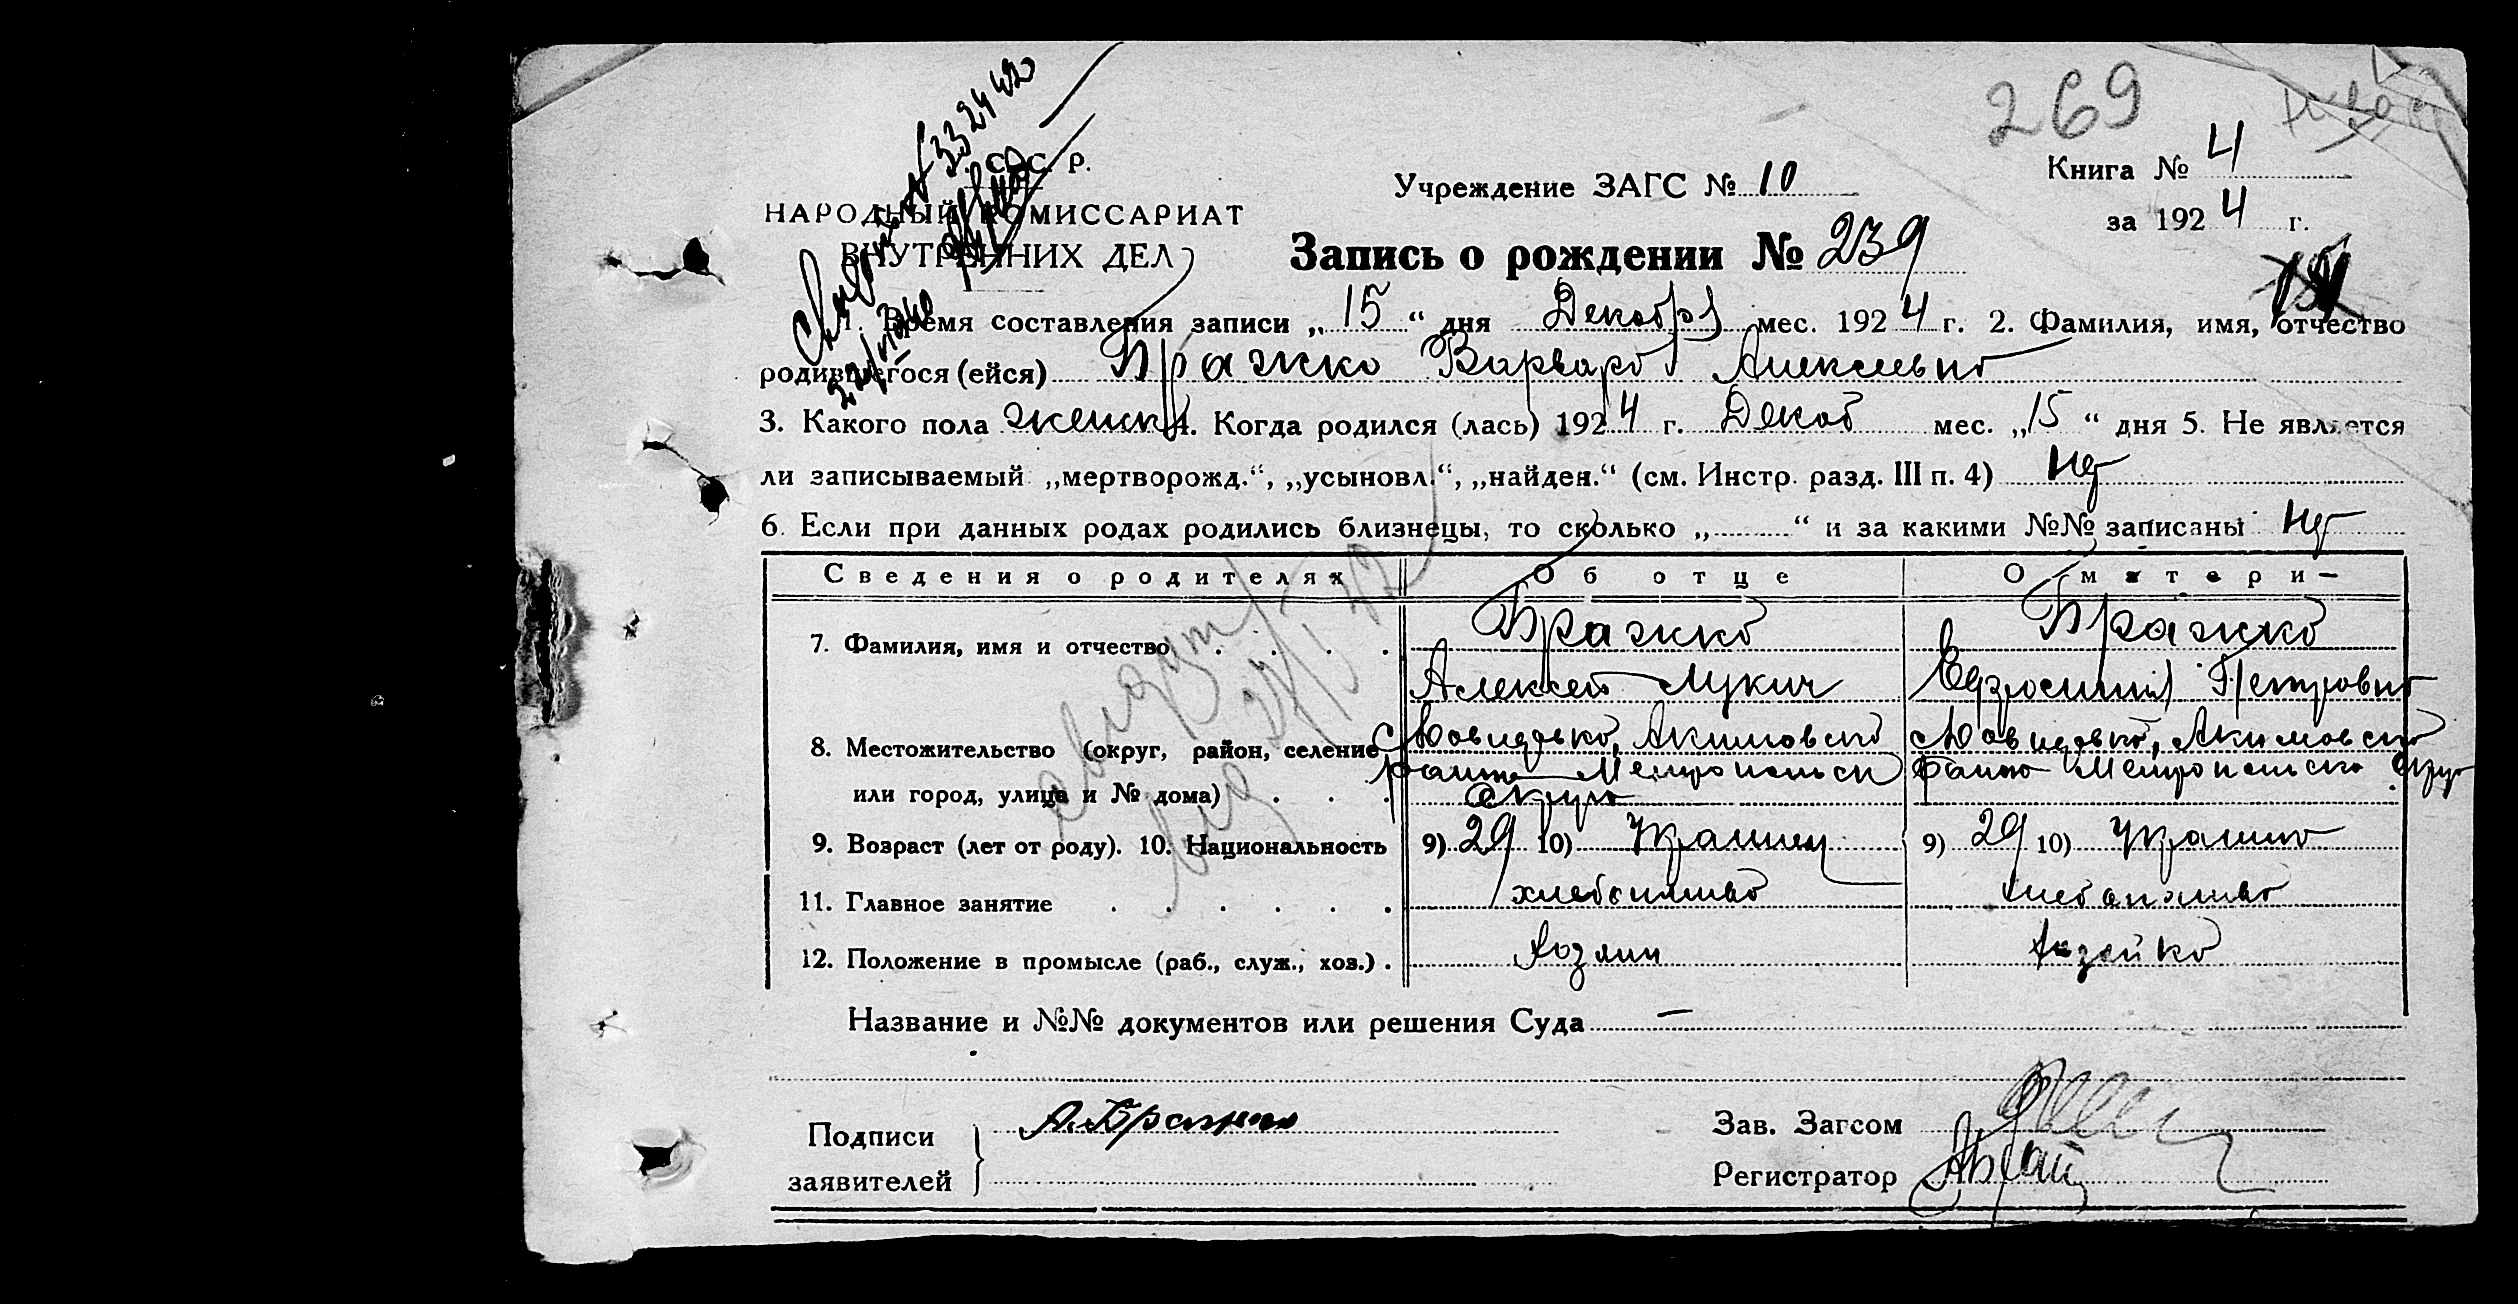 269
С. С. С. Р.
НАРОДНЫЙ КОМИССАРИАТ
ВНУТРЕННИХ ДЕЛ
№ 332442
Учреждение ЗАГС № 10
Книга № 4
за 1924 г.
Запись о рождении № 239
1. Время составления записи „15“ дня Декабря мес. 1924 г. 2. Фамилия, имя, отчество
родившегося (ейся) Бражко Варвара Алексеевна
3. Какого пола женск 4. Когда родился (лась) 1924 г. Декаб мес. „15“ дня 5. Не является
ли записываемый „мертворожд.“, „усыновл.“, „найден.“ (см. Инстр. разд. III п. 4) нет
6. Если при данных родах родились близнецы, то сколько „ “ и за какими №№ записаны нет
Сведения о родителях Об отце О матери
7. Фамилия, имя и отчество Бражко Бражко
Алексей Лукич Ефросиния Петровна
8. Местожительство (округ, район, селение Акимовско Акимовско
или город, улица и № дома) района Мелитопольск района Мелитопольско округ
округа
9. Возраст (лет от роду). 10. Национальность 9) 29 10) Украинец 9) 29 10) Украинка
11. Главное занятие хлебопашество хлебопашество
12. Положение в промысле (раб., служ., хоз.) Хозяин хозяйка
Название и №№ документов или решения Суда —
Подписи заявителей А. Бражко
Зав. Загсом
Регистратор